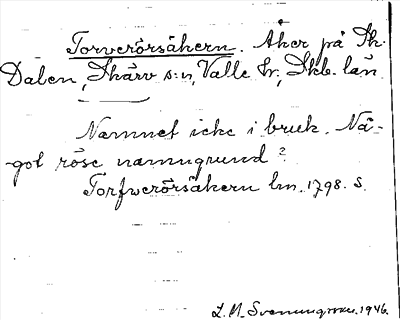 Torverörsåkern. Åker på St.
Dalen, Skärv s:n, Valle hr, Skb. län.
Namnet icke i bruk. Nå-
got röse namngrund?
Torfwerörsåkern lm. 1798. s.
1946.